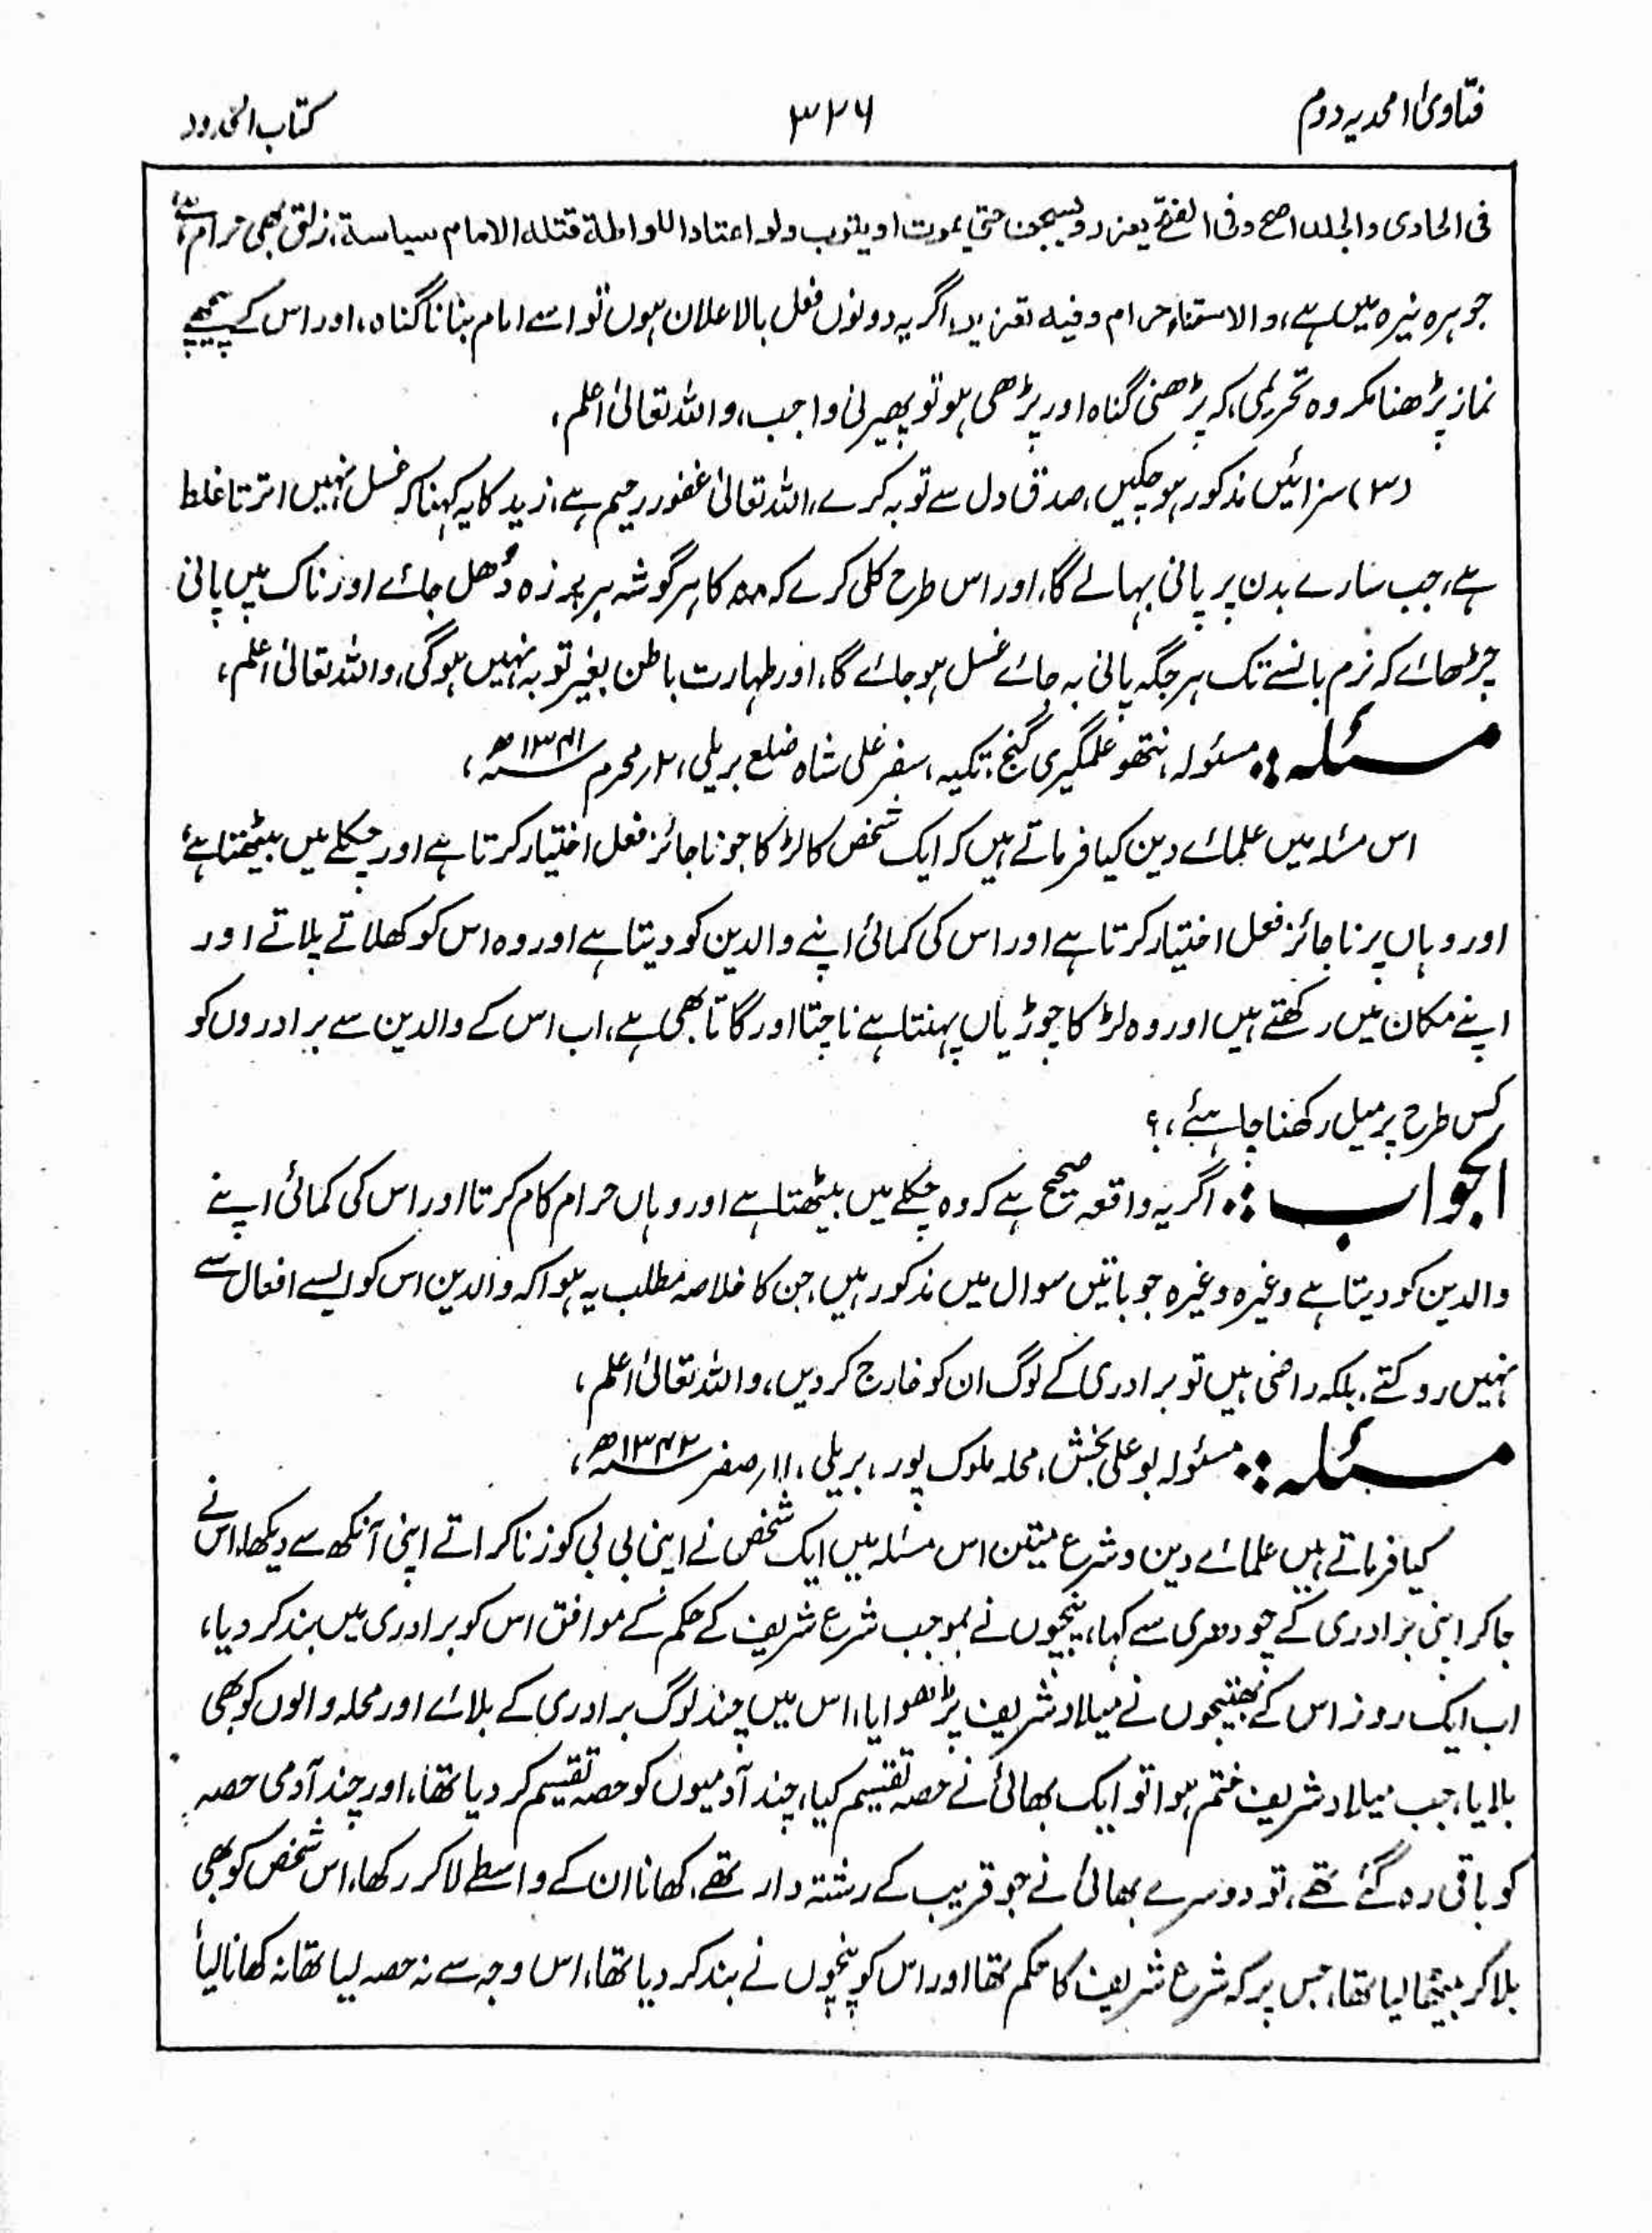 فتاویٰ امجدیہ دوم
۳۲۶
کتاب الحدود
فی الحاوی والجلد اصح وفی الفتح یعزر ویسجن حتی یموت او یتوب ولو اعتاد اللواطة قتله الامام سیاسة، زلق بھی حرام ہے،
جوہرہ نیرہ میں ہے، والاستمناء حرام وفیه تعزیر، اگر یہ دونوں فعل بالاعلان ہوں تو اسے امام بنانا گناہ، اور اس کے پیچھے
نماز پڑھنا مکروہ تحریمی، کہ پڑھنی گناہ اور پڑھی ہو تو پھیرنی واجب، واللہ تعالیٰ اعلم،
(۳) سزائیں مذکور ہو چکیں، صدق دل سے توبہ کرے، اللہ تعالیٰ غفور رحیم ہے، زید کا یہ کہنا کہ غسل نہیں اترتا غلط
ہے، جب سارے بدن پر پانی بہالے گا، اور اس طرح کلی کرے کہ منہ کا ہر گوشہ ہر پرزہ دُھل جائے اور ناک میں پانی
چڑھائے کہ نرم بانسے تک ہر جگہ پانی بہ جائے غسل ہو جائے گا، اور طہارت باطن بغیر توبہ نہیں ہوگی، واللہ تعالیٰ اعلم،
مسئلہ :۔ مسئولہ، نتھو علمگیری گنج، تکیہ، سفر علی شاہ ضلع بریلی، ۲؍ محرم ۱۳۴۱ھ،
اس مسئلہ میں علمائے دین کیا فرماتے ہیں کہ ایک شخص کا لڑکا جو ناجائز فعل اختیار کرتا ہے اور چکلے میں بیٹھتا ہے،
اور وہاں پر ناجائز فعل اختیار کرتا ہے اور اس کی کمائی اپنے والدین کو دیتا ہے اور وہ اس کو کھلاتے پلاتے اور
اپنے مکان میں رکھتے ہیں اور وہ لڑکا چوڑیاں پہنتا ہے ناچتا اور گاتا بھی ہے، اب اس کے والدین سے برادروں کو
کس طرح پر میل رکھنا چاہئے،؟
الجواب :۔ اگر یہ واقعہ صحیح ہے کہ وہ چکلے میں بیٹھتا ہے اور وہاں حرام کام کرتا اور اس کی کمائی اپنے
والدین کو دیتا ہے وغیرہ وغیرہ جو باتیں سوال میں مذکور ہیں، جن کا خلاصہ مطلب یہ ہوا کہ والدین اس کو ایسے افعال سے
نہیں روکتے، بلکہ راضی ہیں تو برادری کے لوگ ان کو خارج کر دیں، واللہ تعالیٰ اعلم،
مسئلہ :۔ مسئولہ بو علی بخش، محلہ ملوک پور، بریلی، ۱۱؍ صفر ۱۳۴۲ھ،
کیا فرماتے ہیں علمائے دین و شرع متین اس مسئلہ میں ایک شخص نے اپنی بی بی کو زنا کراتے اپنی آنکھ سے دیکھا، اس نے
جاکر اپنی برادری کے چودھری سے کہا، پنچوں نے بموجب شرع شریف کے حکم کے موافق اس کو برادری میں بند کر دیا،
اب ایک روز اس کے بھتیجوں نے میلاد شریف پڑھوایا، اس میں چند لوگ برادری کے بلائے اور محلہ والوں کو بھی
بلایا، جب میلاد شریف ختم ہوا تو ایک بھائی نے حصہ تقسیم کیا، چند آدمیوں کو حصہ تقسیم کر دیا تھا، اور چند آدمی حصہ
کو باقی رہ گئے تھے، تو دوسرے بھائی نے جو قریب کے رشتہ دار تھے، کھانا ان کے واسطے لاکر رکھا، اس شخص کو بھی
بلاکر بیٹھا لیا تھا، جس پر کہ شرع شریف کا حکم تھا اور اس کو پنچوں نے بند کر دیا تھا، اس وجہ سے نہ حصہ لیا تھا نہ کھانا لیا